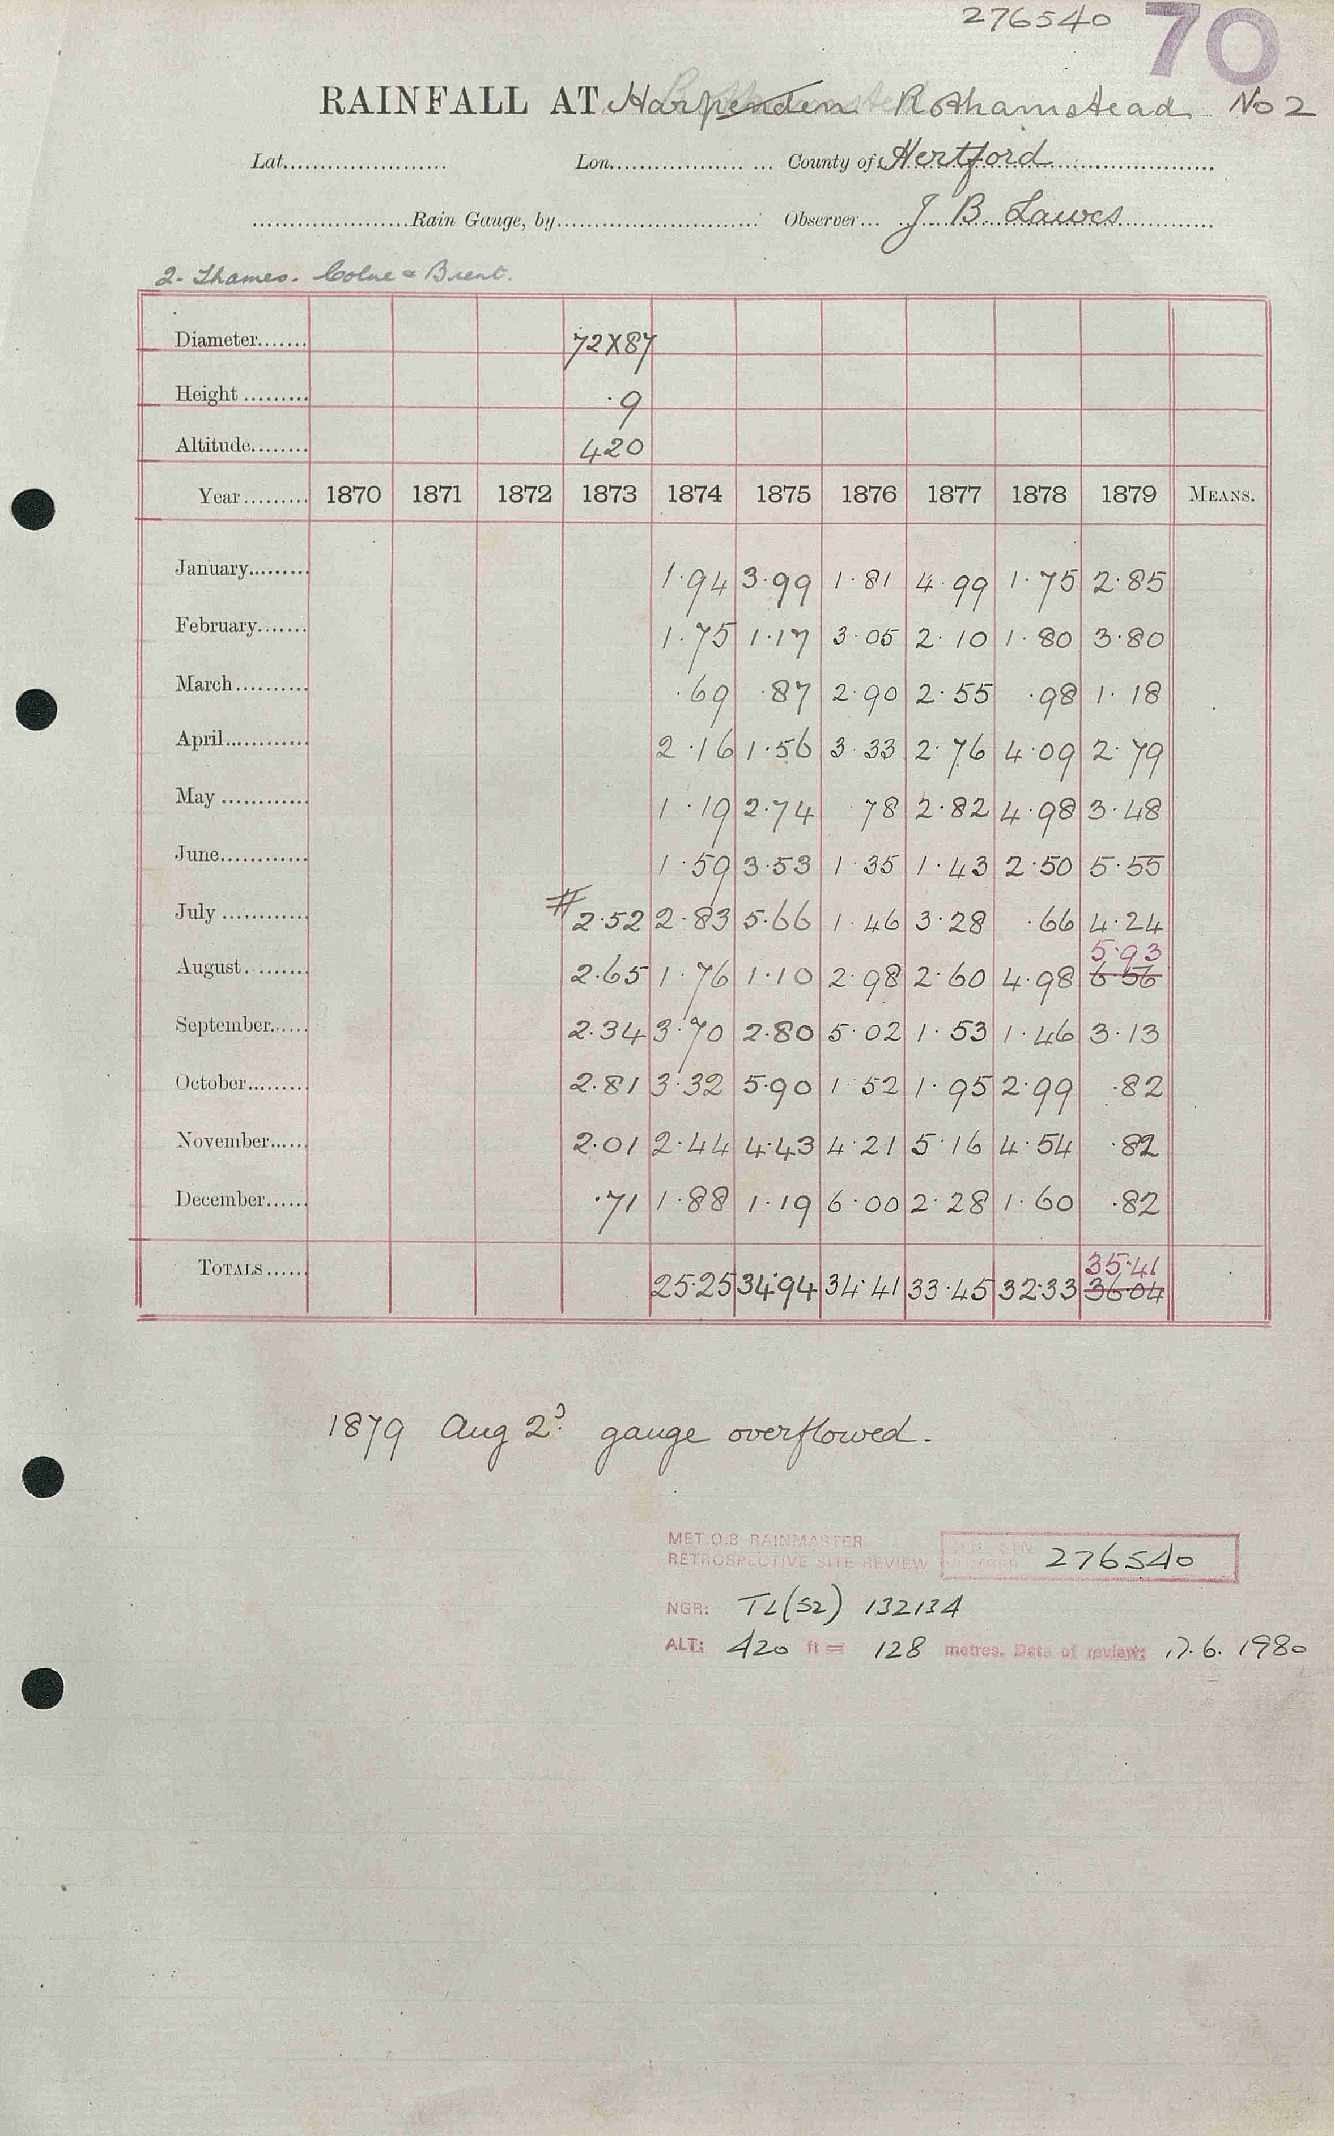 276540 70
RAINFALL AT Harpenden Rothamstead No 2
Lat. Lon. County of Hertford
Rain Gauge, by Observer J B Lawes
2. Thames. Colne & Brent.
Diameter 72X87
Height ·9
Altitude 420
Year 1870 1871 1872 1873 1874 1875 1876 1877 1878 1879 MEANS.
January 1·94 3·99 1·81 4·99 1·75 2·85
February 1·75 1·17 3·05 2·10 1·80 3·80
March ·69 ·87 2·90 2·55 ·98 1·18
April 2·16 1·56 3·33 2·76 4·09 2·79
May 1·19 2·74 78 2·82 4·98 3·48
June 1·59 3·53 1·35 1·43 2·50 5·55
July # 2·52 2·83 5·66 1·46 3·28 ·66 4·24
5·93
August 2·65 1·76 1·10 2·98 2·60 4·98 6 56
September 2·34 3·70 2·80 5·02 1·53 1·46 3·13
October 2·81 3·32 5·90 1·52 1·95 2·99 ·82
November 2·01 2·44 4·43 4·21 5·16 4·54 ·82
December ·71 1·88 1·19 6·00 2·28 1·60 ·82
35·41
TOTALS 25·25 34·94 34·41 33·45 32·33 36 04
1879 Aug 2d gauge overflowed.
MET.O.8 RAINMASTER
RETROSPECTIVE SITE REVIEW 276540
NGR: TL(52) 132134
ALT: 420 ft = 128 metres. Date of review: 17.6.1980